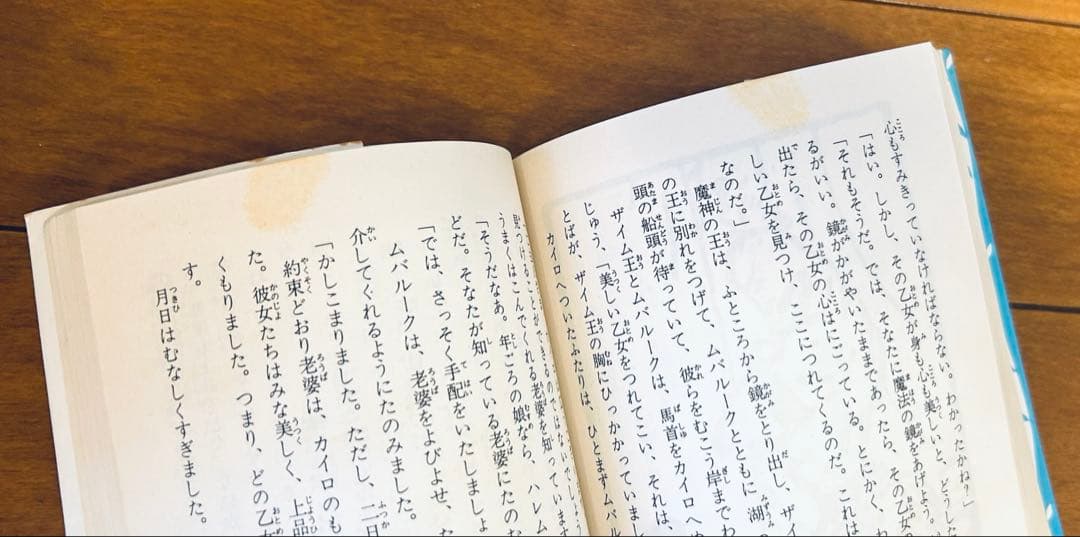 心もすみきっていなければならない。わかったかね？」
「はい。しかし、その乙女が身も心も美しいと、どうした
「それもそうだ。では、そなたに魔法の鏡をあげよう。
るがいい。鏡がかがやいたままであったら、その乙女の
出たら、その乙女の心はにごっている。とにかく、わ
しい乙女を見つけ、ここにつれてくるのだ。これは
なのだ。」
魔神の王は、ふところから鏡をとり出し、ザイ
の王に別れをつげて、ムバルークとともに湖
頭の船頭が待っていて、彼らをむこう岸までわ
ザイム王とムバルークは、馬首をカイロへ
じゅう、「美しい乙女をつれてこい、それは、
とばが、ザイム王の胸にひっかかっていまし
カイロへついたふたりは、ひとまずムバル
見つけることができるものではないでしょう
うまくはこんでくれる老婆を知っています
「そうだなあ。年ごろの娘なら、ハレム
どだ。そなたが知っている老婆にたの
「では、さっそく手配をいたしましょ
ムバルークは、老婆をよびよせ、
介してくれるようにたのみました。
「かしこまりました。ただし、二日
約束どおり老婆は、カイロのも
た。彼女たちはみな美しく、上品
くもりました。つまり、どの乙女
す。
月日はむなしくすぎました。